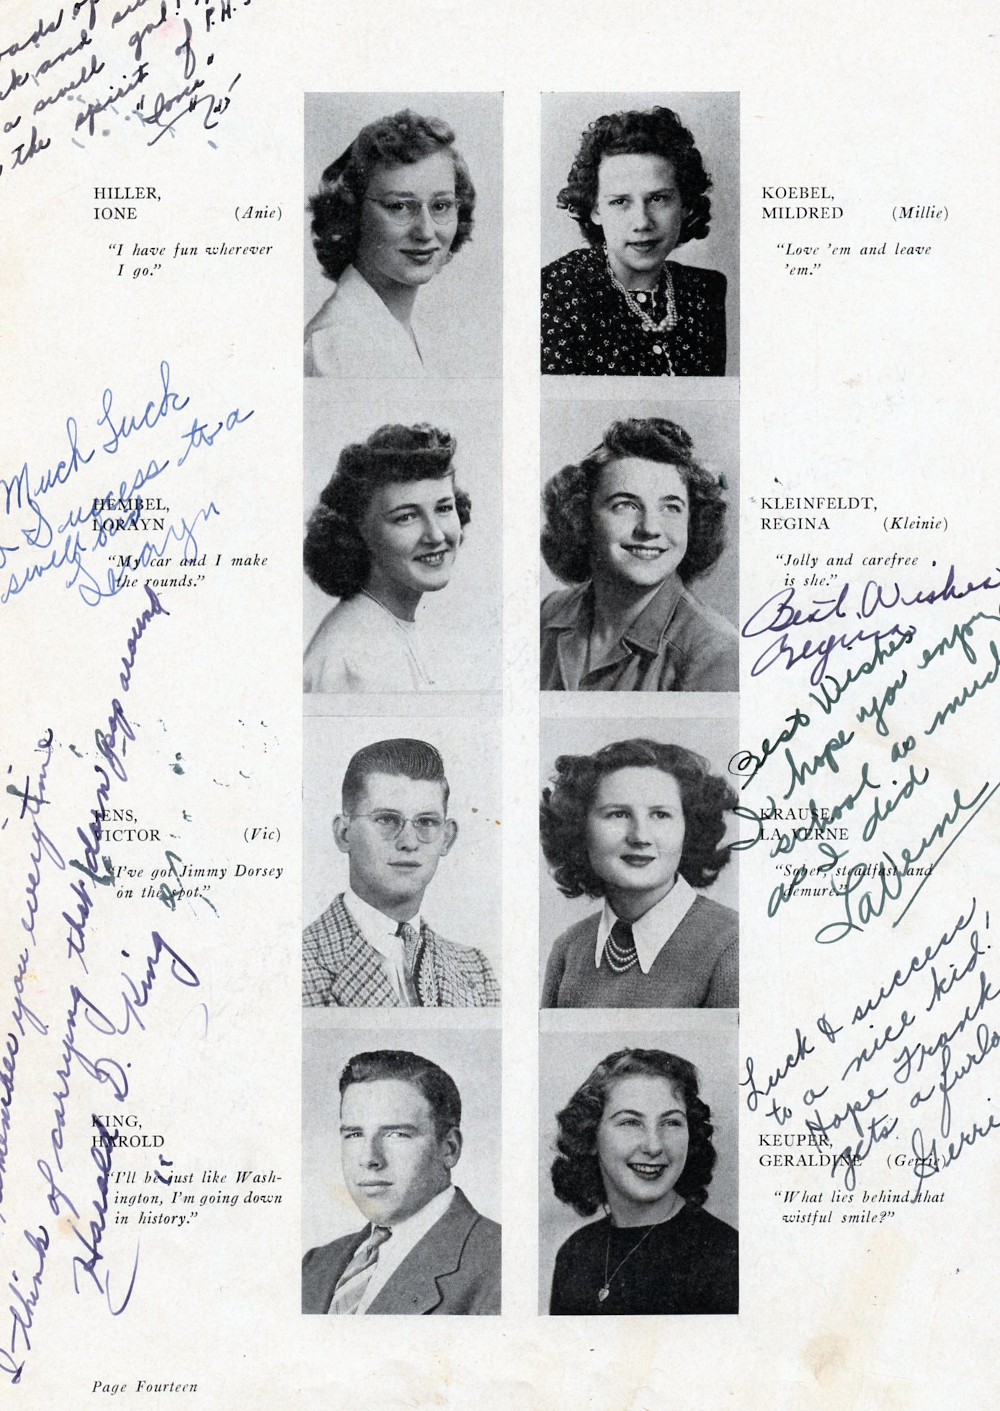 and
a swell gal!
the spirit of P.H.S.
"Ione"
HILLER,
IONE (Anie)
"I have fun wherever
I go."
KOEBEL,
MILDRED (Millie)
"Love 'em and leave
'em."
Much Luck
& Success to a
swell kid
Lorayn
HEMBEL,
LORAYN
"My car and I make
the rounds."
KLEINFELDT,
REGINA (Kleinie)
"Jolly and carefree
is she."
Best Wishes
Regina
Best Wishes
I hope you enjoy
school as much
as I did
LaVerne
JENS,
VICTOR (Vic)
"I've got Jimmy Dorsey
on the spot."
KRAUSE,
LA VERNE
"Sober, steadfast and
demure."
remember you everytime
I think of carrying that darn pop around
Harold D. King
Luck & success
to a nice kid!
Hope Frank
gets a furlo
Gerrie
KING,
HAROLD
"I'll be just like Wash-
ington, I'm going down
in history."
KEUPER,
GERALDINE (Gerrie)
"What lies behind that
wistful smile?"
Page Fourteen